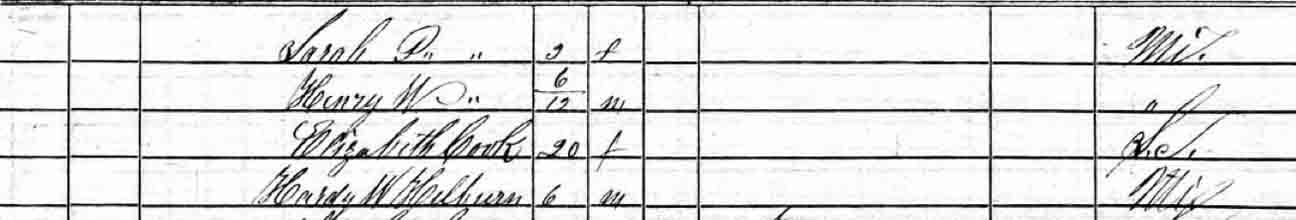 Sarah P " " 2 f Mis.
Henry W " " 6/12 m "
Elizabeth Cook 20 f S.C.
Hardy W Hilburn 6 m Mis